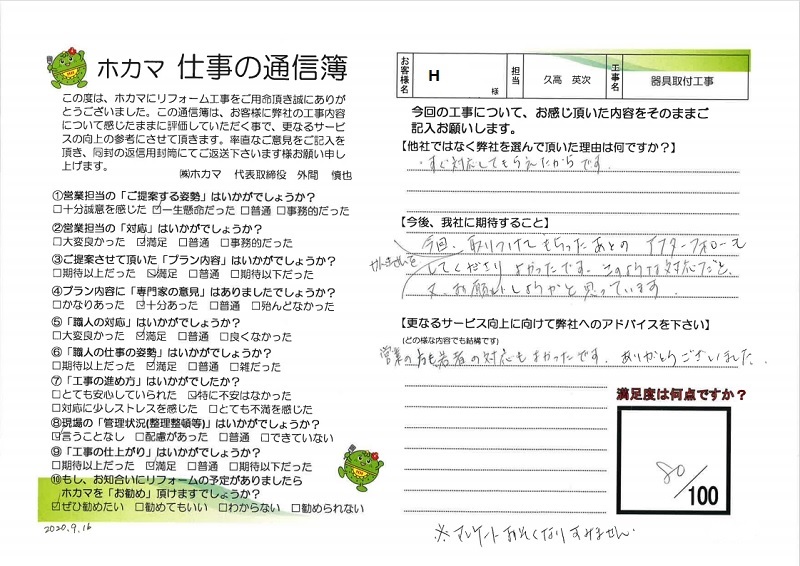 ホカマ 仕事の通信簿
この度は、ホカマにリフォーム工事をご用命頂き誠にありが
とうございました。この通信簿は、お客様に弊社の工事内容
について感じたままに評価していただく事で、更なるサービ
スの向上の参考にさせて頂きます。率直なご意見をご記入を
頂き、同封の返信用封筒にてご返送下さいます様お願い申し
上げます。
㈱ホカマ 代表取締役 外間 慎也
①営業担当の「ご提案する姿勢」はいかがでしょうか?
□十分誠意を感じた ☑一生懸命だった □普通 □事務的だった
②営業担当の「対応」はいかがでしょうか?
□大変良かった ☑満足 □普通 □事務的だった
③ご提案させて頂いた「プラン内容」はいかがでしょうか?
□期待以上だった ☑満足 □普通 □期待以下だった
④プラン内容に「専門家の意見」はありましたでしょうか?
□かなりあった ☑十分あった □普通 □殆んどなかった
⑤「職人の対応」はいかがでしょうか?
□大変良かった ☑満足 □普通 □良くなかった
⑥「職人の仕事の姿勢」はいかがでしょうか?
□期待以上だった ☑満足 □普通 □雑だった
⑦「工事の進め方」はいかがでしたか?
□とても安心していられた ☑特に不安はなかった
□対応に少しストレスを感じた □とても不満を感じた
⑧現場の「管理状況(整理整頓等)」はいかがでしょうか?
☑言うことなし □配慮があった □普通 □できていない
⑨「工事の仕上がり」はいかがでしょうか?
□期待以上だった ☑満足 □普通 □期待以下だった
⑩もし、お知合いにリフォームの予定がありましたら
ホカマを「お勧め」頂けますでしょうか?
☑ぜひ勧めたい □勧めてもいい □わからない □勧められない
2020.9.16
お客様名 H 様 担当 久高 英次 工事名 器具取付工事
今回の工事について、お感じ頂いた内容をそのままご
記入お願いします。
【他社ではなく弊社を選んで頂いた理由は何ですか?】
・すぐ対応してもらえたからです。
【今後、我社に期待すること】
今回、取りつけてもらったあとの アフターフォローも
してくださり よかったです。そのような対応だと、
又、お願いしようかと思っています。
【更なるサービス向上に向けて弊社へのアドバイスを下さい】
(どの様な内容でも結構です)
営業の方も若者の対応もよかったです。ありがとうございました。
満足度は何点ですか?
80/100
※アンケートおそくなりすみません。